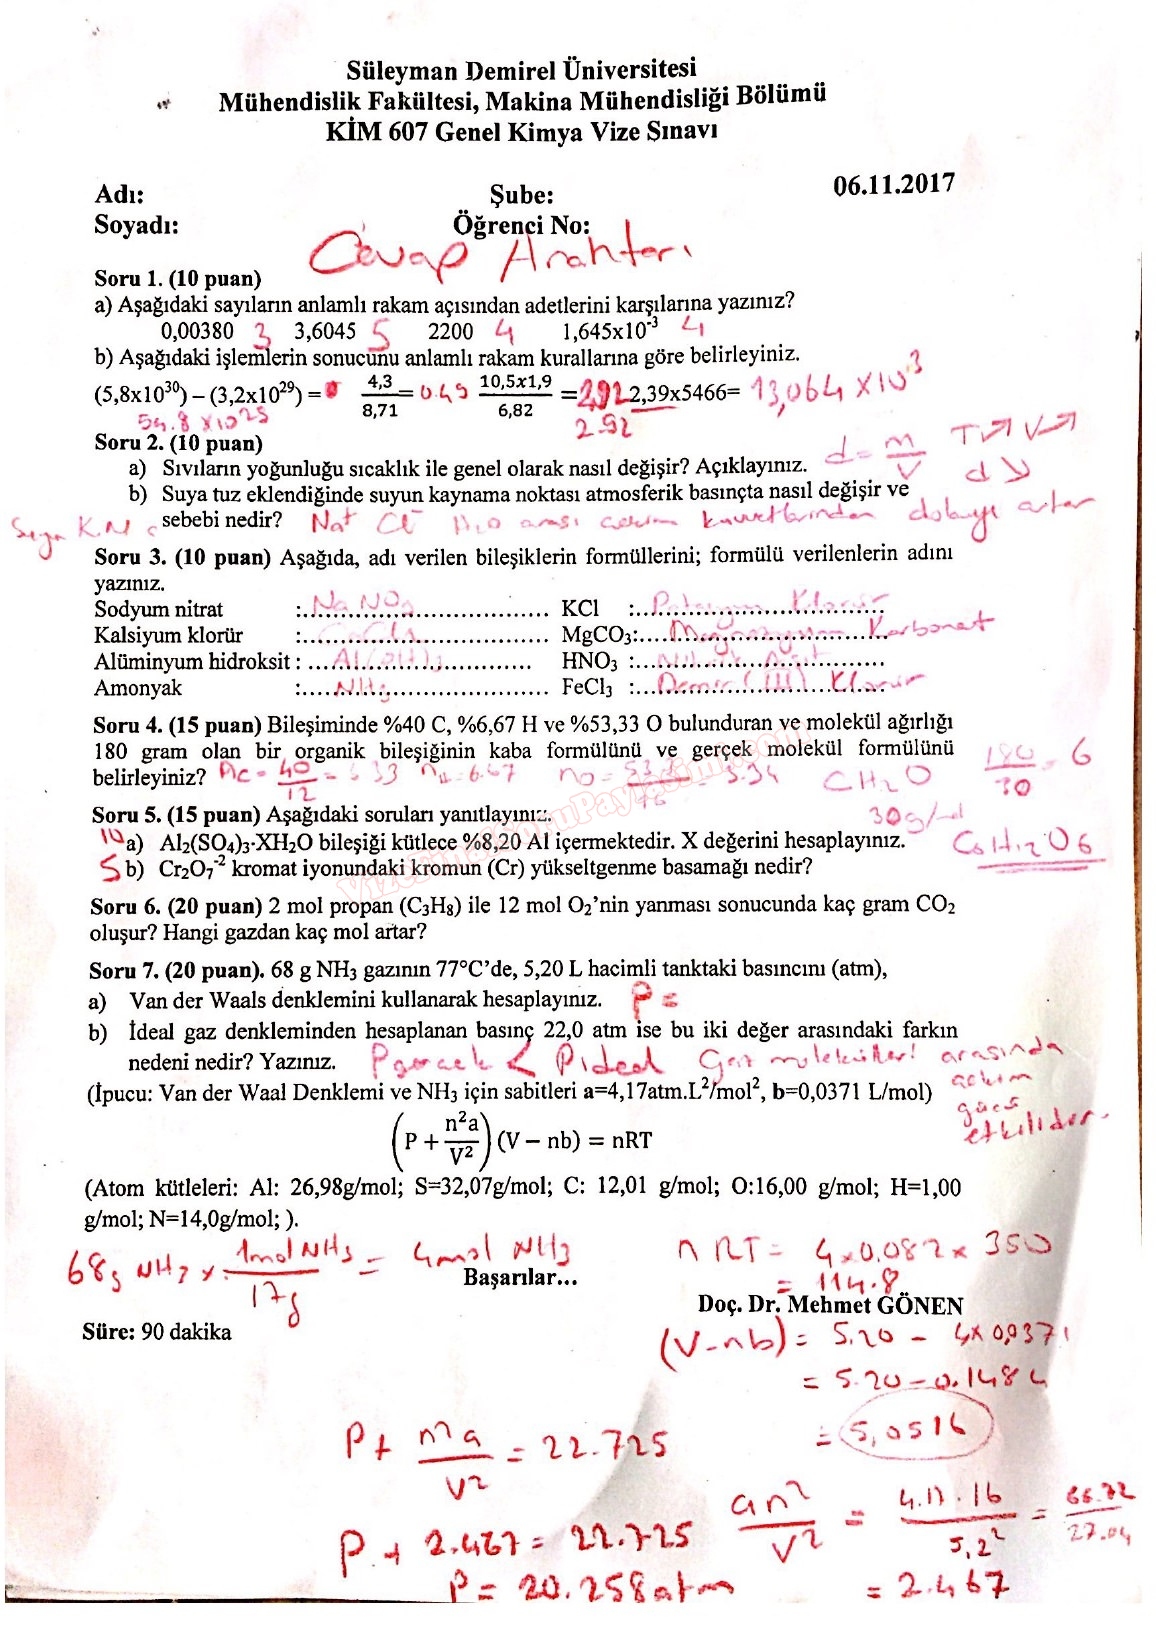 Süleyman Demirel Üniversitesi
Mühendislik Fakültesi, Makina Mühendisliği Bölümü
KİM 607 Genel Kimya Vize Sınavı
06.11.2017
Adı: Şube:
Soyadı: Öğrenci No:
Cevap Anahtarı
Soru 1. (10 puan)
a) Aşağıdaki sayıların anlamlı rakam açısından adetlerini karşılarına yazınız?
0,00380 3 3,6045 5 2200 4 1,645x10⁻³ 4
b) Aşağıdaki işlemlerin sonucunu anlamlı rakam kurallarına göre belirleyiniz.
(5,8x10³⁰) – (3,2x10²⁹) = 4,3/8,71 = 0.49 10,5x1,9/6,82 = 2,92 2,39x5466= 13,064 x 10³
54.8 x 10²⁹ 2.92
Soru 2. (10 puan)
a) Sıvıların yoğunluğu sıcaklık ile genel olarak nasıl değişir? Açıklayınız. d = m/V T↗ V↗ d↘
b) Suya tuz eklendiğinde suyun kaynama noktası atmosferik basınçta nasıl değişir ve
sebebi nedir? Na⁺ Cl⁻ H₂O arası çekim kuvvetlerinden dolayı artar
Soru 3. (10 puan) Aşağıda, adı verilen bileşiklerin formüllerini; formülü verilenlerin adını
yazınız.
Sodyum nitrat :..NaNO₃.. KCl :..Potasyum Klorür..
Kalsiyum klorür :..CaCl₂.. MgCO₃:....Magnezyum Karbonat
Alüminyum hidroksit : ...Al(OH)₃... HNO₃ :...Nitrik Asit...
Amonyak :....NH₃... FeCl₃ :...Demir (III) Klorür
Soru 4. (15 puan) Bileşiminde %40 C, %6,67 H ve %53,33 O bulunduran ve molekül ağırlığı
180 gram olan bir organik bileşiğinin kaba formülünü ve gerçek molekül formülünü
belirleyiniz? nc = 40/12 = 3.33 nH = 6.67 no = = 3.34 CH₂O 180/30 = 6
30g/mol
C₆H₁₂O₆
Soru 5. (15 puan) Aşağıdaki soruları yanıtlayınız.
10 a) Al₂(SO₄)₃·XH₂O bileşiği kütlece %8,20 Al içermektedir. X değerini hesaplayınız.
5 b) Cr₂O₇⁻² kromat iyonundaki kromun (Cr) yükseltgenme basamağı nedir?
VizeFinalSoruPaylasimi.com
Soru 6. (20 puan) 2 mol propan (C₃H₈) ile 12 mol O₂'nin yanması sonucunda kaç gram CO₂
oluşur? Hangi gazdan kaç mol artar?
Soru 7. (20 puan). 68 g NH₃ gazının 77°C'de, 5,20 L hacimli tanktaki basıncını (atm),
a) Van der Waals denklemini kullanarak hesaplayınız. P =
b) İdeal gaz denkleminden hesaplanan basınç 22,0 atm ise bu iki değer arasındaki farkın
nedeni nedir? Yazınız. Pgerçek < Pideal Gaz molekülleri arasında
çekim
gücü
etkilider.
(İpucu: Van der Waal Denklemi ve NH₃ için sabitleri a=4,17atm.L²/mol², b=0,0371 L/mol)
(P + n²a/V²) (V – nb) = nRT
(Atom kütleleri: Al: 26,98g/mol; S=32,07g/mol; C: 12,01 g/mol; O:16,00 g/mol; H=1,00
g/mol; N=14,0g/mol; ).
68g NH₃ x 1mol NH₃/17g = 4mol NH₃
nRT = 4x0.082x350
= 114.8
Başarılar...
Doç. Dr. Mehmet GÖNEN
Süre: 90 dakika
(V-nb) = 5.20 - 4x0,0371
= 5.20-0.1484
= 5,0516
P + n²a/V² = 22.725
an²/V² = 4.17.16/5,2² = 66.72/27.04
= 2.467
P + 2.467 = 22.725
P = 20.258atm